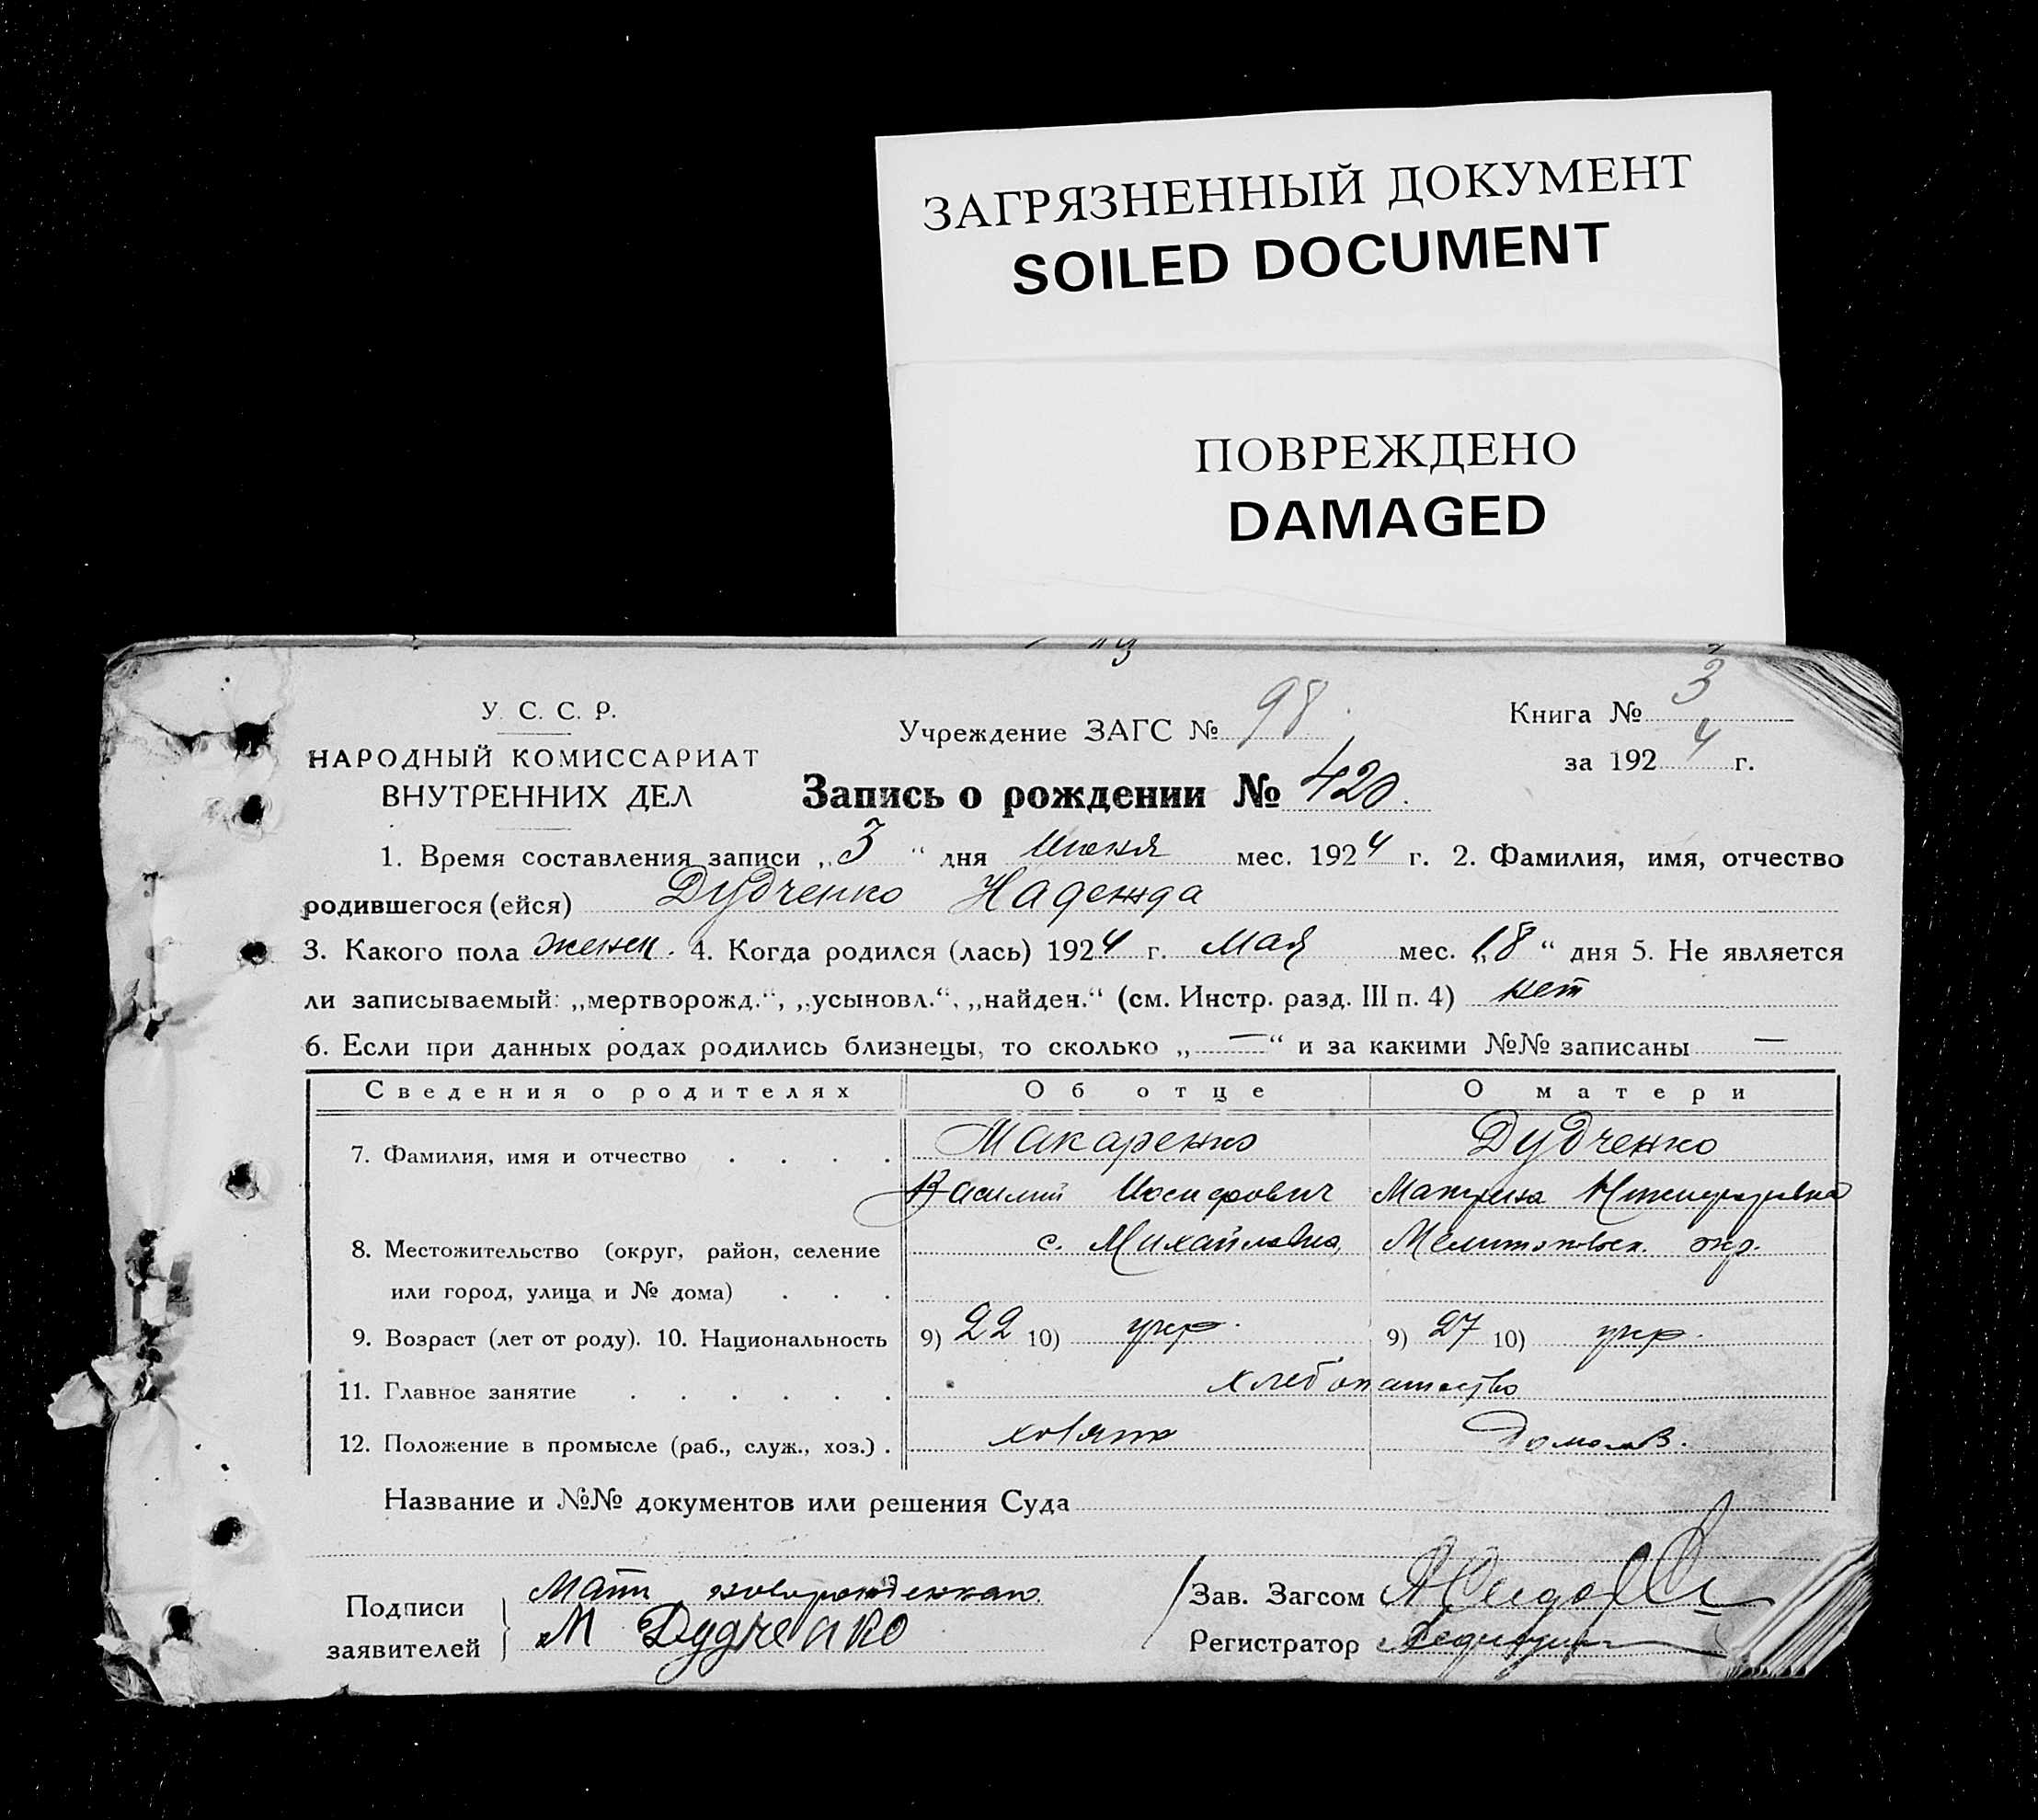 ЗАГРЯЗНЕННЫЙ ДОКУМЕНТ
SOILED DOCUMENT
ПОВРЕЖДЕНО
DAMAGED
У. С. С. Р.
НАРОДНЫЙ КОМИССАРИАТ
ВНУТРЕННИХ ДЕЛ
Учреждение ЗАГС № 98.
Книга № 3
за 1924 г.
Запись о рождении № 420.
1. Время составления записи „3“ дня Июня мес. 1924 г. 2. Фамилия, имя, отчество
родившегося (ейся) Дудченко Надежда
3. Какого пола женск. 4. Когда родился (лась) 1924 г. Мая мес. „18“ дня 5. Не является
ли записываемый: „мертворожд.“, „усыновл.“, „найден.“ (см. Инстр. разд. III п. 4) нет
6. Если при данных родах родились близнецы, то сколько „—“ и за какими №№ записаны —
Сведения о родителях Об отце О матери
7. Фамилия, имя и отчество . . . . Макаренко Дудченко
Василий Иосифович
8. Местожительство (округ, район, селение с. Михайловка, Мелитопольск. окр.
или город, улица и № дома) . . .
9. Возраст (лет от роду). 10. Национальность 9) 22 10) укр. 9) 27 10) укр.
11. Главное занятие . . . . . . хлебопашество
12. Положение в промысле (раб., служ., хоз.) .
Название и №№ документов или решения Суда
Подписи заявителей
Мать новорожденной
М Дудченко
Зав. Загсом
Регистратор